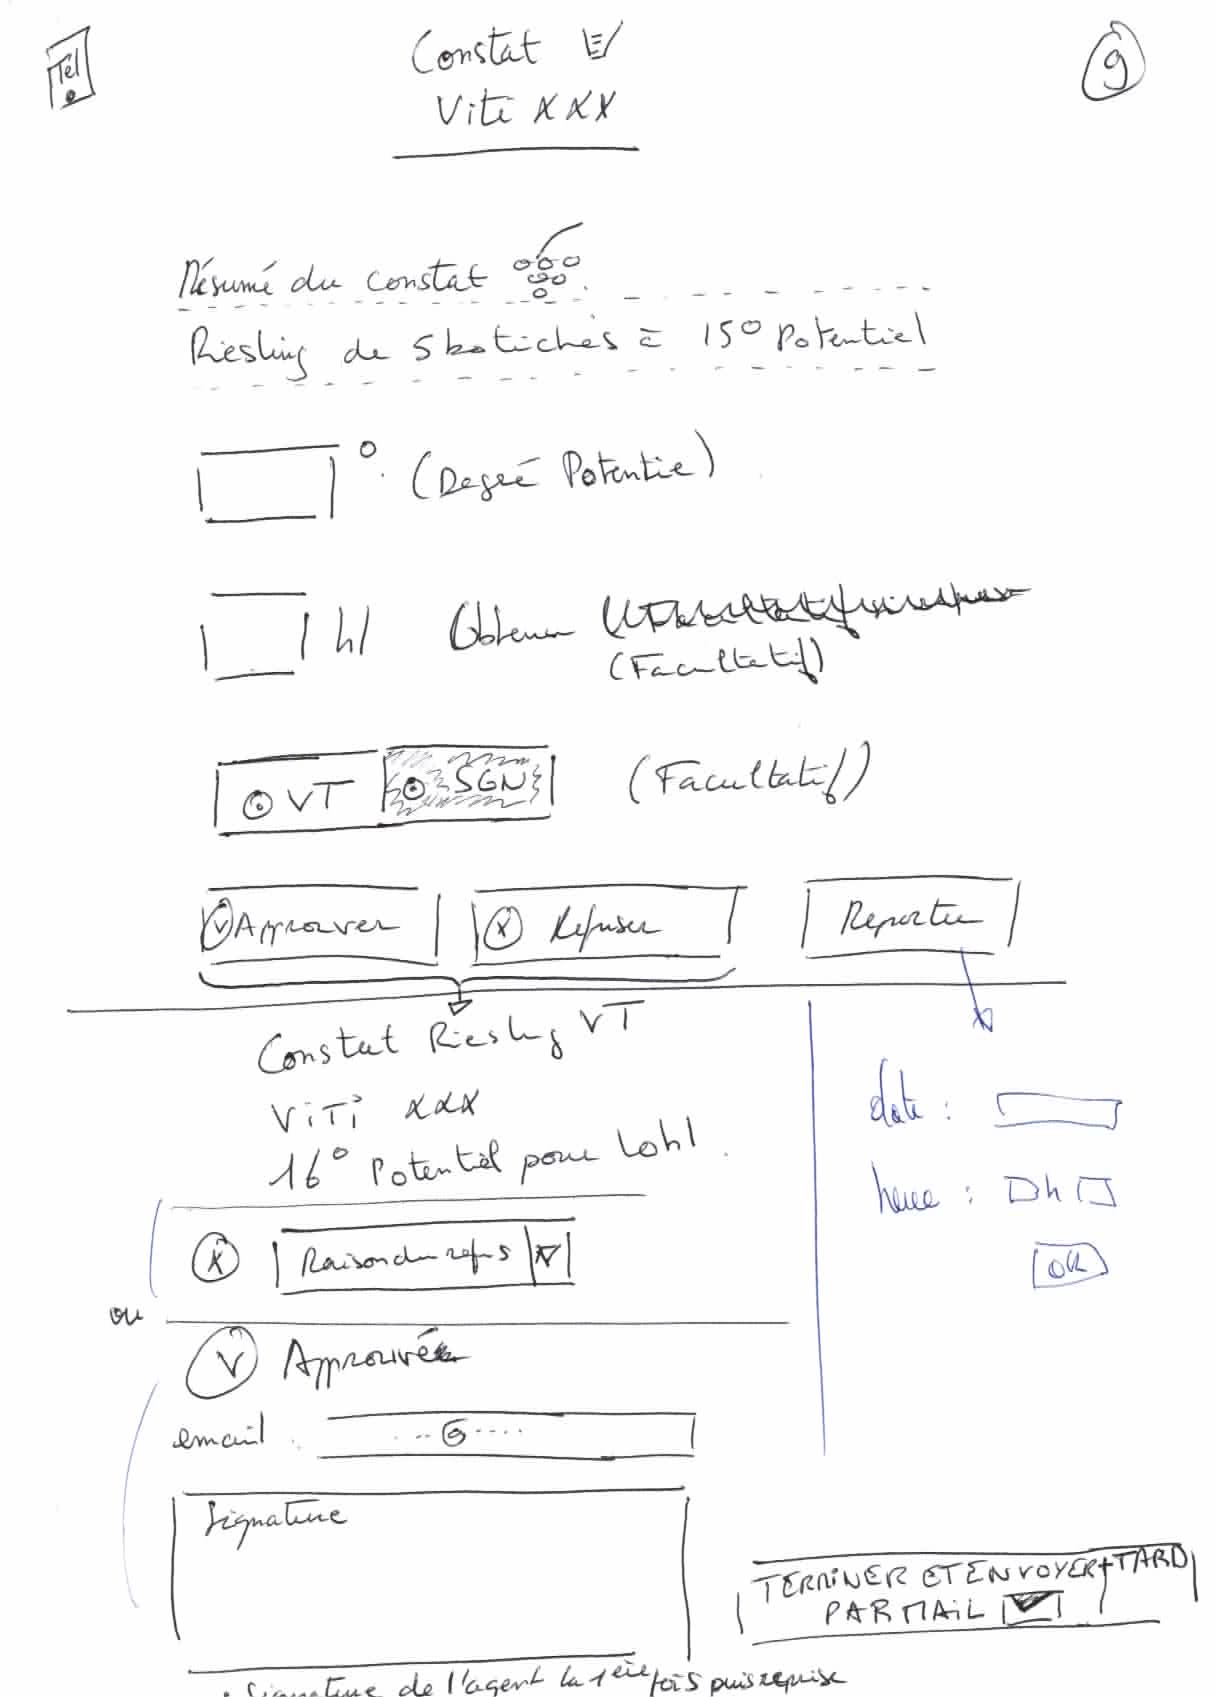 Tél
Constat
9
Viti XXX
Résumé du constat
Riesling de 5 botiches à 15° Potentiel
° (Degré Potentie)
hl Obtenu
(Facultatif)
VT SGN (Facultatif)
V Approuver X Refuser Reporter
Constat Riesling VT
ViTi XXX
16° Potentiel pour 60hl.
date :
heure : h
OK
X Raison du refus
ou
V Approuvée
email : --@----
Signature
TERMINER ET ENVOYER + TARD
PAR MAIL
• Signature de l'agent la 1ère fois puis reprise